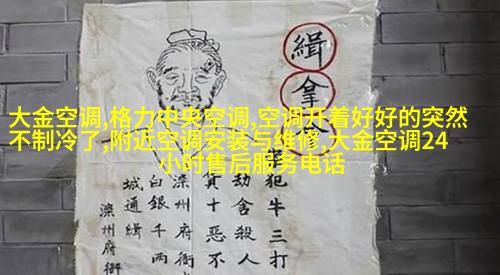 大金空调,格力中央空调,空调开着好好的突然
不制冷了,附近空调安装与维修,大金空调24
小时售后服务电话
緝拿
犯牛三打
劫舍殺人
十惡不
滦州府衙
白銀千两
城通緝
滦州府衙